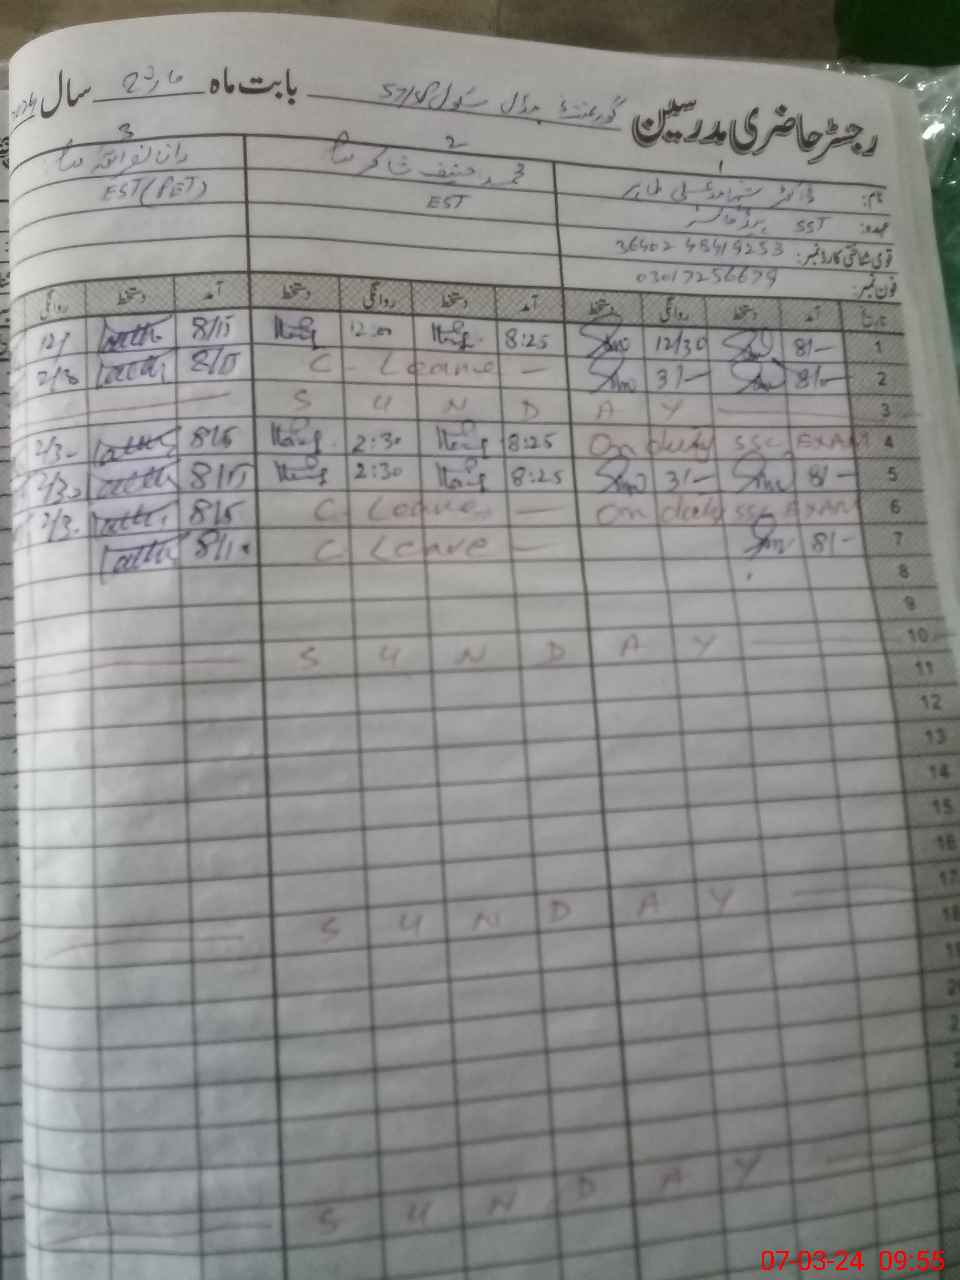 رجسٹر حاضری مدرسین گورنمنٹ مڈل سکول 57/SP بابت ماہ مارچ سال 2024
1 2 3
نام: ڈاکٹر شہزاد علی طاہر محمد حنیف شاکر
عہدہ: SST ہیڈ ماسٹر EST EST (PET)
قومی شناختی کارڈ نمبر:
فون نمبر: 03017256679
تاریخ آمد دستخط روانگی دستخط آمد دستخط روانگی دستخط آمد دستخط روانگی
1 8/- 12/30 8:25 12:00 8/15 12/
2 8/- 3/- C. Leave —
3 S U N D A Y
4 On duty SSC EXAM 8:25 2:30 8/15 2/30
5 8/- 3/- 8:25 2:30 8/15 2/30
6 On duty SSC EXAM C. Leave — 8/15 2/30
7 8/- C Leave — 8/10
8
9
10 S U N D A Y
11
12
13
14
15
16
17 S U N D A Y
18
S U N D A Y
07-03-24 09:55